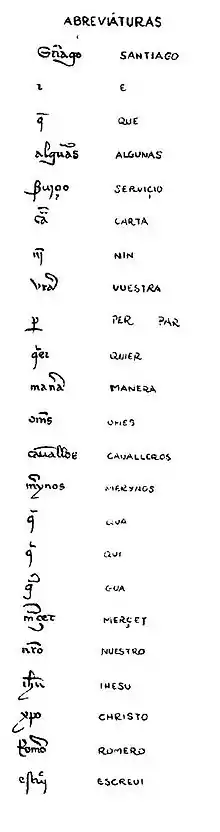 ABREVIÁTURAS
SANTIAGO
E
q̄ QUE
algũas ALGUNAS
SERVIÇIO
CARTA
NIN
VUESTRA
PER PAR
qer QUIER
manãa MANERA
oms OMES
cauallos CAVALLEROS
mynos MERYNOS
q QUA
q QUI
q GUA
mçet MERÇET
nro NUESTRO
ihu IHESU
xpo CHRISTO
romo ROMERO
ESCREVI